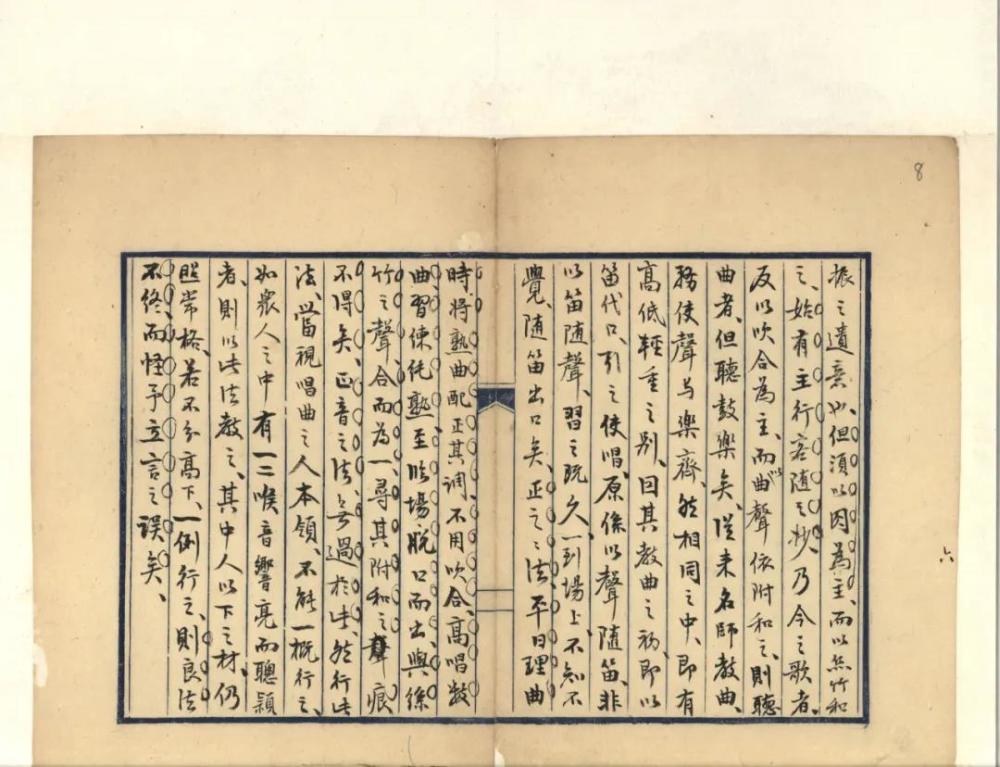 振之遺意也、但須以肉為主、而以絲竹和
之、始有主行客随之妙、乃今之歌者、
反以吹合為主、而以曲聲依附和之、則聽
曲者、但聽鼓樂矣、從来名師教曲、
務使聲与樂齊、然相同之中、即有
高低輕重之别、因其教曲之初、即以
笛代口、引之使唱、原係以聲随笛、非
以笛随聲、習之既久、一到場上、不知不
覺、随笛出口矣、正之之法、平日理曲
時、将熟曲配正其調、不用吹合、高唱数
曲、習練純熟、至臨場、脱口而出、與絲
竹之聲合而為一、尋其附和之聲痕
不得矣、正音之法、無過於此、然行此
法、當視唱曲之人本領、不能一概行之、
如衆人之中有一二喉音響亮而聰穎
者、則以此法教之、其中人以下之材、仍
照常格、若不分高下、一例行之、則良法
不終、而怪予立言之誤矣、
8
六